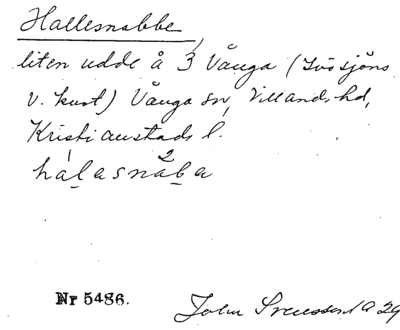 Hallesnabbe,
liten udde å 3 Vånga (Ivösjöns
v. kust) Vånga sn, Villands hd,
Kristianstads l.
hal̲asnab̲a
2
Nr 5486.
John Svensson 1929